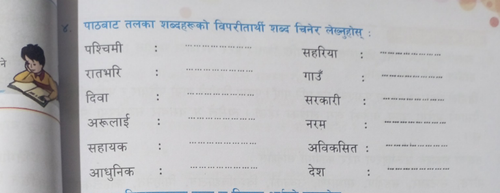 ४. पाठबाट तलका शब्दहरूको विपरीतार्थी शब्द चिनेर लेख्नुहोस् :
पश्चिमी : .................... सहरिया : ....................
रातभरि : .................... गाउँ : ....................
दिवा : .................... सरकारी : ....................
अरूलाई : .................... नरम : ....................
सहायक : .................... अविकसित : ....................
आधुनिक : .................... देश : ....................